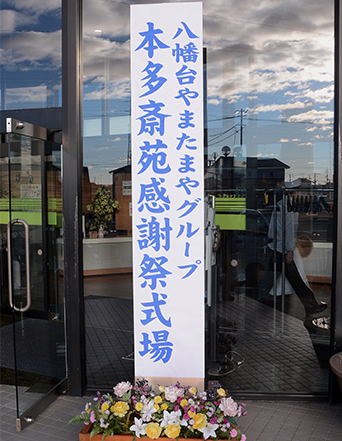 八幡台やまたまやグループ
本多斎苑感謝祭式場